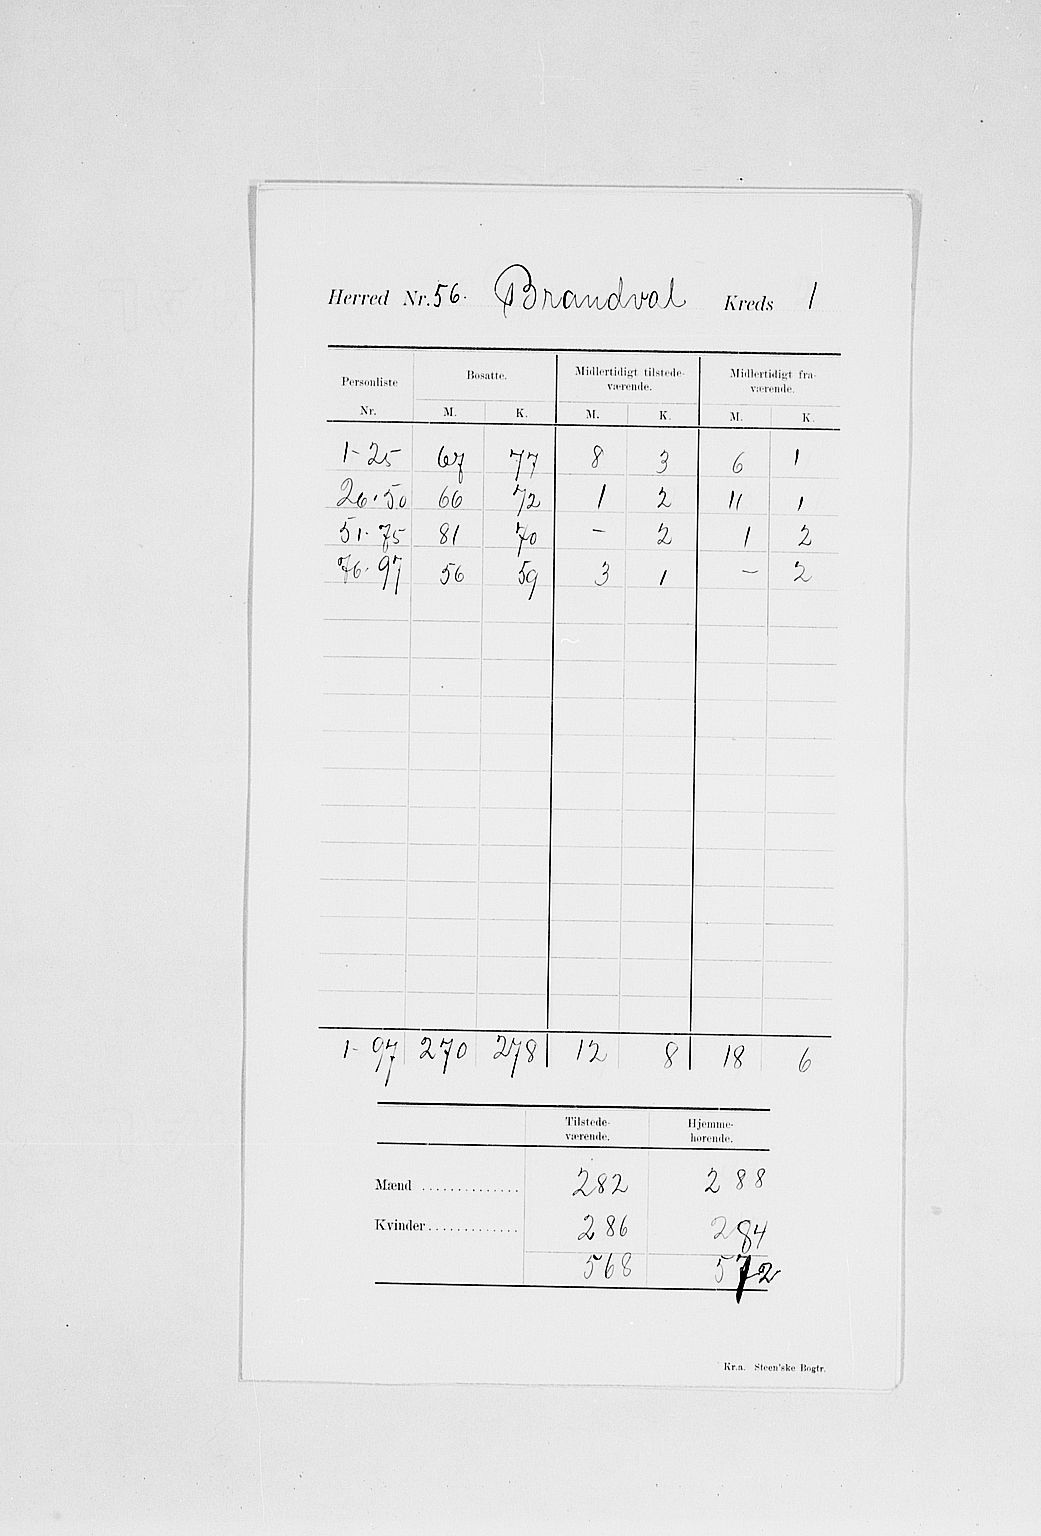 Herred Nr. 56. Brandval Kreds 1
Personliste Nr. Bosatte. Midlertidigt tilstede-værende. Midlertidigt fra-værende.
M. K. M. K. M. K.
1-25 67 77 8 3 6 1
26-50 66 72 1 2 11 1
51-75 81 70 – 2 1 2
76-97 56 59 3 1 – 2
1-97 270 278 12 8 18 6
Tilstede-værende. Hjemme-hørende.
Mænd .............. 282 288
Kvinder ............. 286 284
568 572
Kr.a. Steen'ske Bogtr.